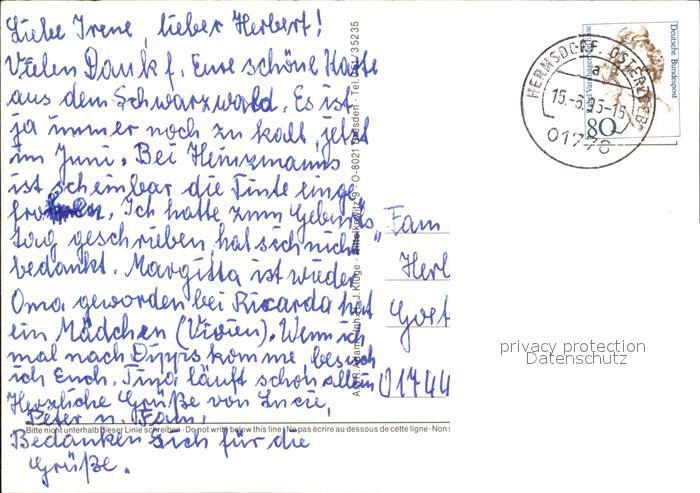 Liebe Irene, lieber Herbert!
Vielen Dank f. Eure schöne Karte
aus dem Schwarzwald. Es ist
ja immer noch zu kalt, jetzt
im Juni. Bei Heinzmanns
ist scheinbar die Tinte einge
froren. Ich hatte zum Geburts
tag geschrieben, hat sich nicht
bedankt. Margitta ist wieder
Oma geworden bei Ricarda hat
ein Mädchen (Vivien). Wenn ich
mal nach Dipps komme besuch
ich Euch. Tina läuft schon allein
Herzliche Grüße von Lucie,
Peter u. Fam.
Bitte nicht unterhalb dieser Linie schreiben · Do not write below this line · Ne pas écrire au dessous de cette ligne · Non s
Bedanken sich für die
Grüße.
J. Kluge · 9 · O-8021 Dresden · Tel. 051/35235
Fam
Herb
Goet
01744
HERMSDORF, OSTERZGEB.
a
15.-6.95-16
01776
Deutsche Bundespost
80
privacy protection
Datenschutz